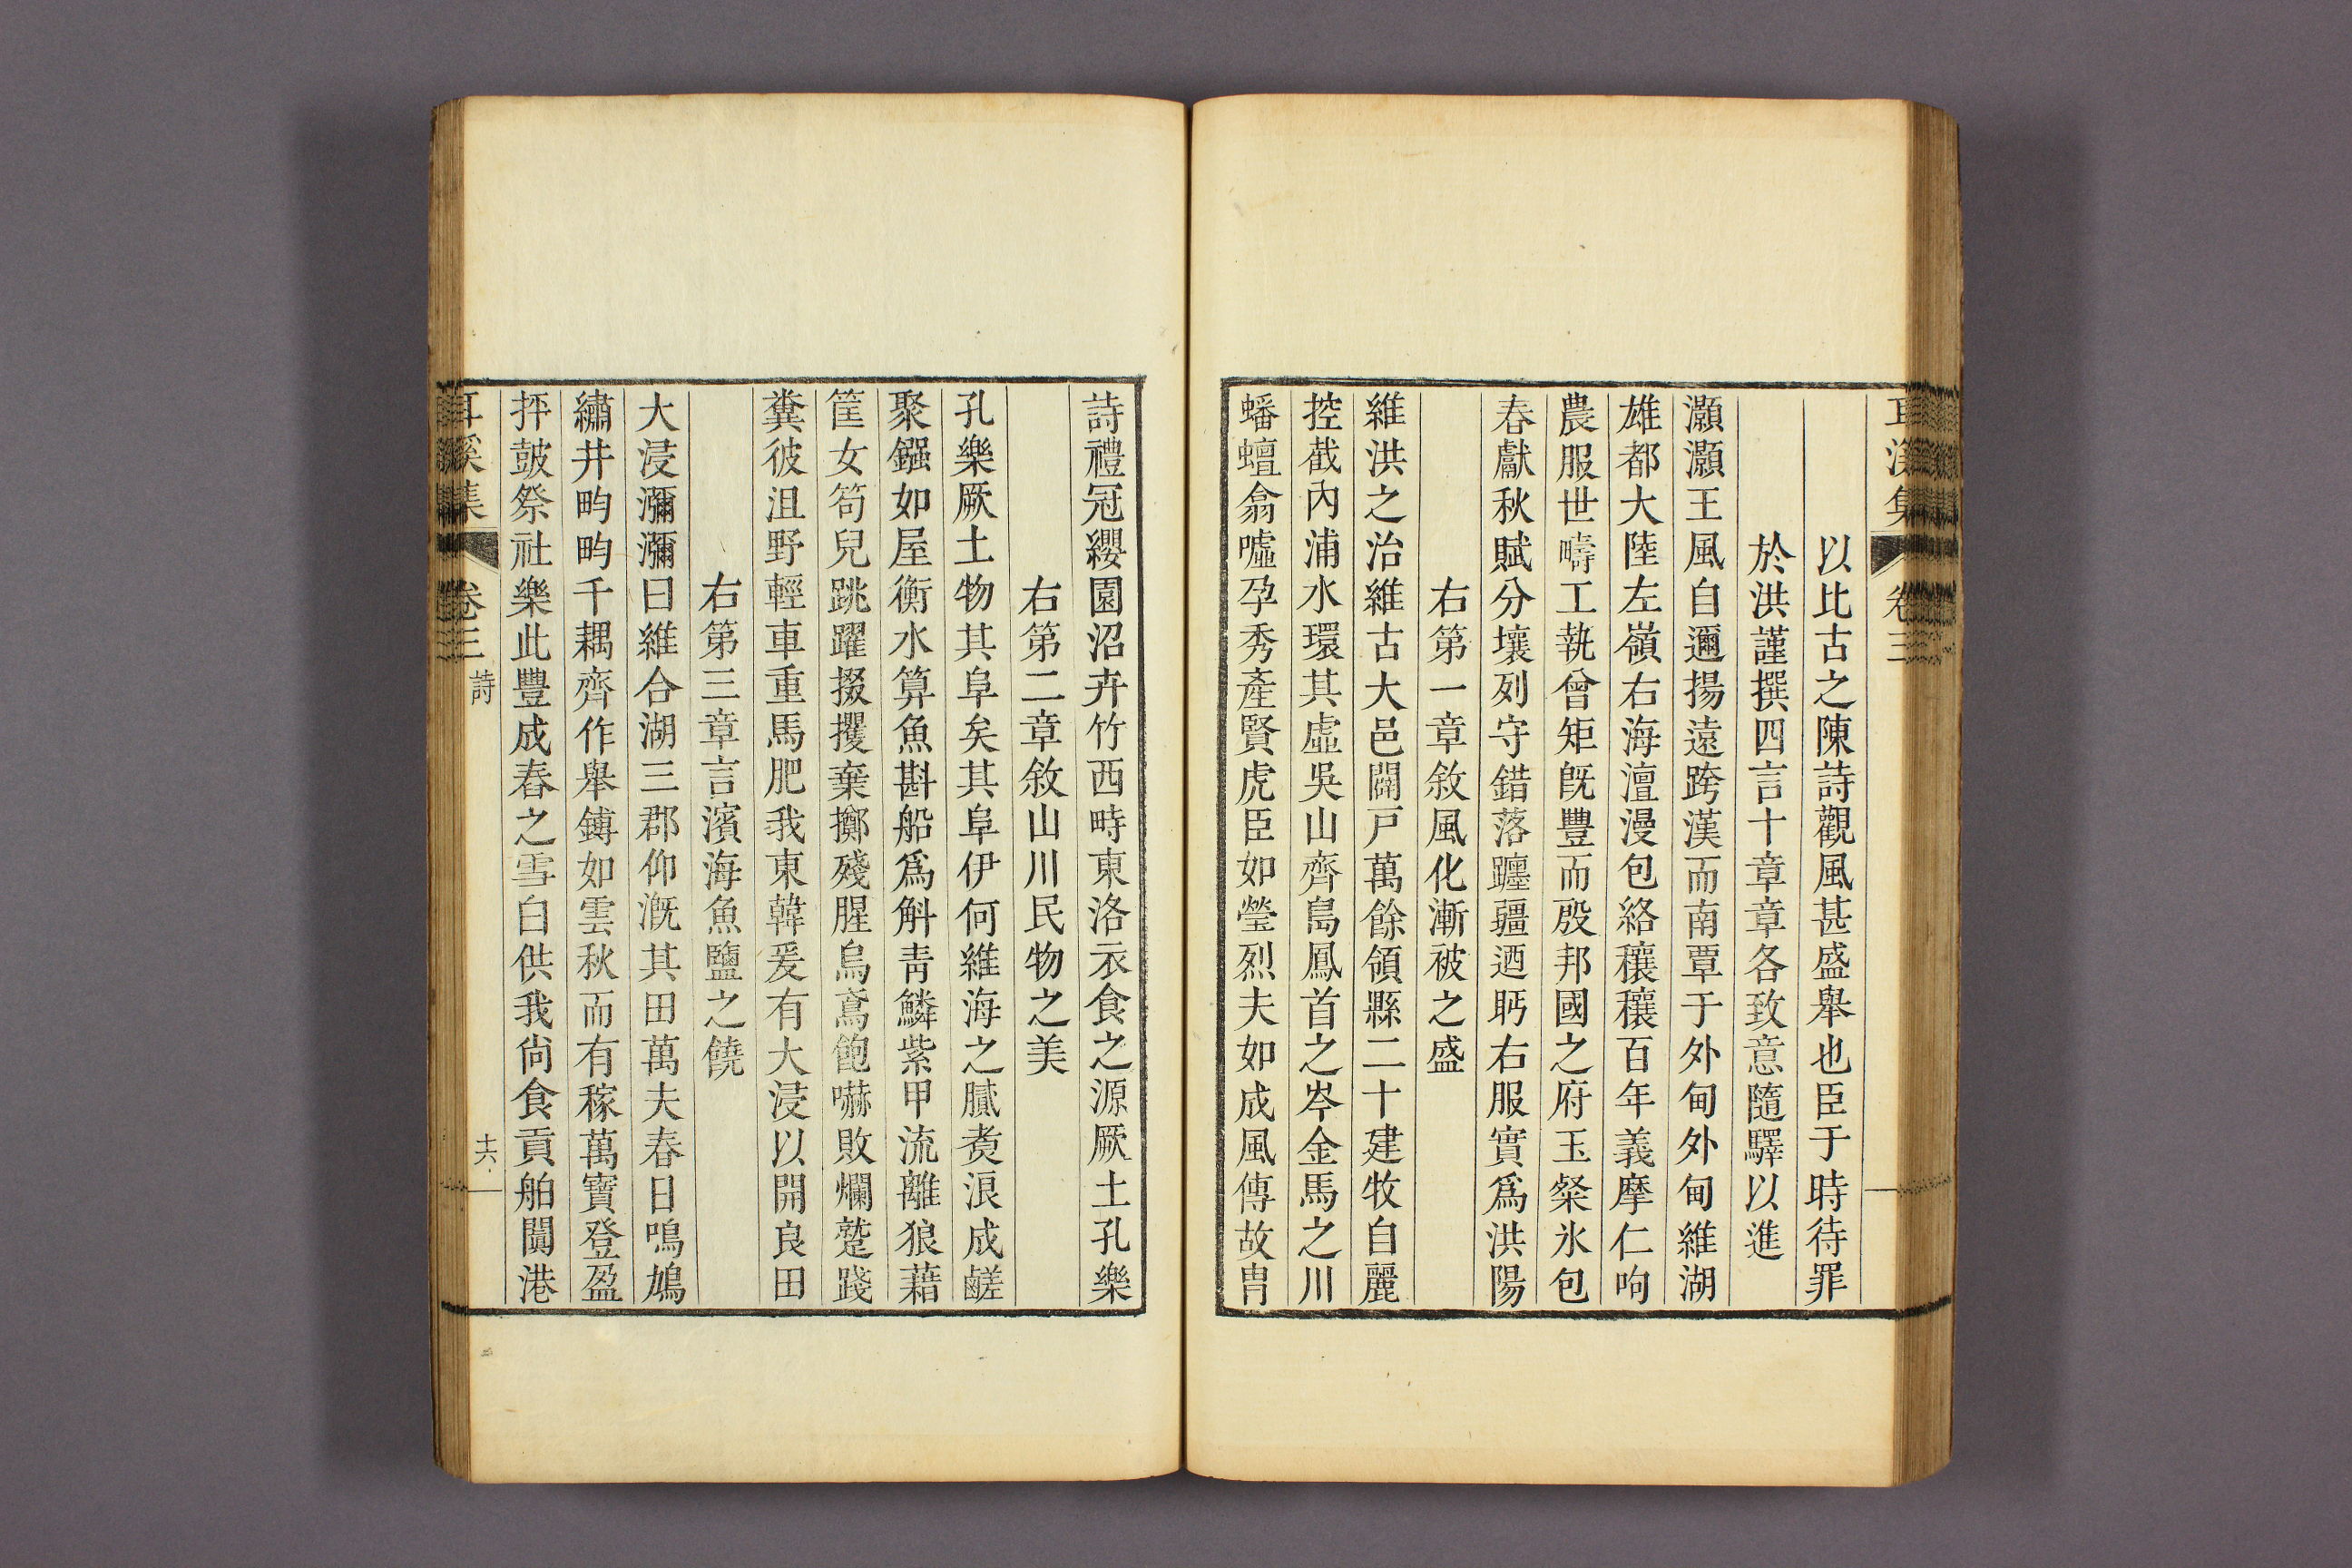 耳溪集 卷三
以比古之陳詩觀風甚盛舉也臣于時待罪
於洪謹撰四言十章章各致意隨驛以進
灝灝王風自邇揚遠跨漢而南覃于外甸外甸維湖
雄都大陸左嶺右海澶漫包絡穰穰百年義摩仁呴
農服世疇工執曾矩旣豐而殷邦國之府玉粲氷包
春獻秋賦分壤列守錯落躔疆迺眄右服實爲洪陽
右第一章敘風化漸被之盛
維洪之治維古大邑闢戸萬餘領縣二十建牧自麗
控截內浦水環其虛吳山齊島鳳首之岑金馬之川
蟠蟺翕噓孕秀產賢虎臣如瑩烈夫如成風傳故胄
詩禮冠纓園沼卉竹西畤東洛衣食之源厥土孔樂
右第二章敘山川民物之美
孔樂厥土物其阜矣其阜伊何維海之膩煑浪成鹺
聚鏹如屋衡水算魚斟船爲斛靑鱗紫甲流離狼藉
筐女笱兒跳躍掇攫棄擲殘腥烏鳶飽嚇敗爛蹩踐
糞彼沮野輕車重馬肥我東韓爰有大浸以開良田
右第三章言濱海魚鹽之饒
大浸瀰瀰曰維合湖三郡仰漑其田萬夫春日鳴鳩
繡井畇畇千耦齊作舉鎛如雲秋而有稼萬寶登盈
抨皷祭社樂此豐成舂之雪白供我尙食貢舶闐港
耳溪集 卷三 詩 十六